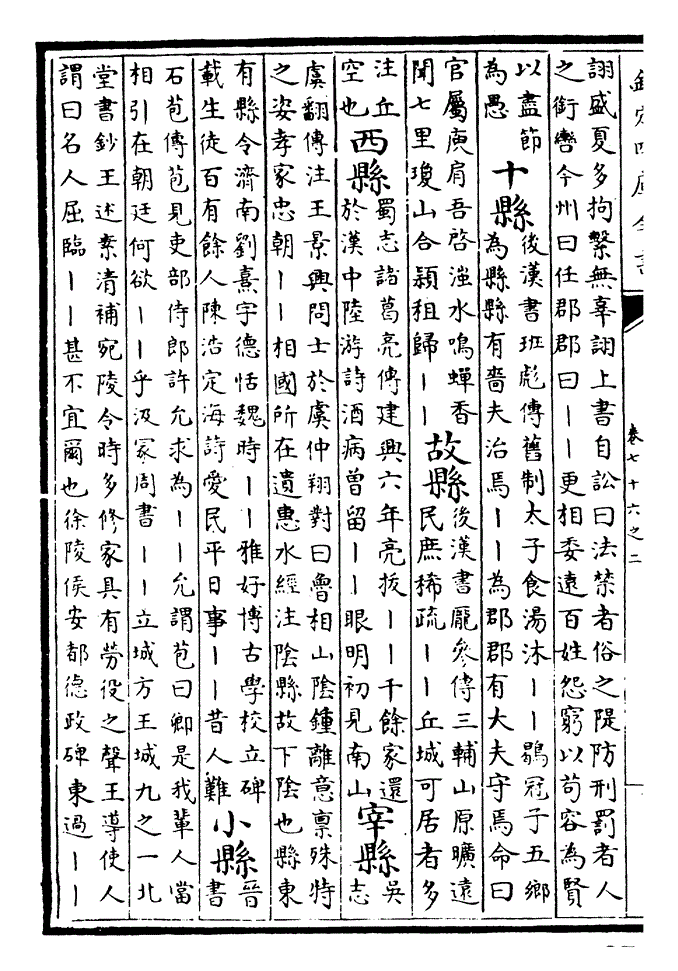 欽定四庫全書
卷七十六之二
詡盛夏多拘繫無辜詡上書自訟曰法禁者俗之隄防刑罰者人
之銜轡今州曰任郡郡曰丨丨更相委遠百姓怨窮以苟容為賢
以盡節
為愚
十縣
後漢書班彪傳舊制太子食湯沐丨丨鶡冠子五鄉
為縣縣有嗇夫治焉丨丨為郡郡有大夫守焉命曰
官屬庾肩吾啓滍水鳴蟬香
聞七里瓊山合穎租歸丨丨
故縣
後漢書龐參傳三輔山原曠遠
民庶稀疏丨丨丘城可居者多
注丘
空也
西縣
蜀志諸葛亮傳建興六年亮拔丨丨千餘家還
於漢中陸游詩酒病曾留丨丨眼明初見南山
宰縣
吳
志
虞翻傳注王景興問士於虞仲翔對曰魯相山陰鍾離意禀殊特
之姿孝家忠朝丨丨相國所在遺惠水經注陰縣故下陰也縣東
有縣令濟南劉熹字德怡魏時丨丨雅好博古學校立碑
載生徒百有餘人陳浩定海詩愛民平日事丨丨昔人難
小縣
晉
書
石苞傳苞見吏部侍郎許允求為丨丨允謂苞曰卿是我輩人當
相引在朝廷何欲丨丨乎汲冢周書丨丨立城方王城九之一北
堂書鈔王述素清補宛陵令時多修家具有勞役之聲王導使人
謂曰名人屈臨丨丨甚不宜爾也徐陵侯安都德政碑東過丨丨